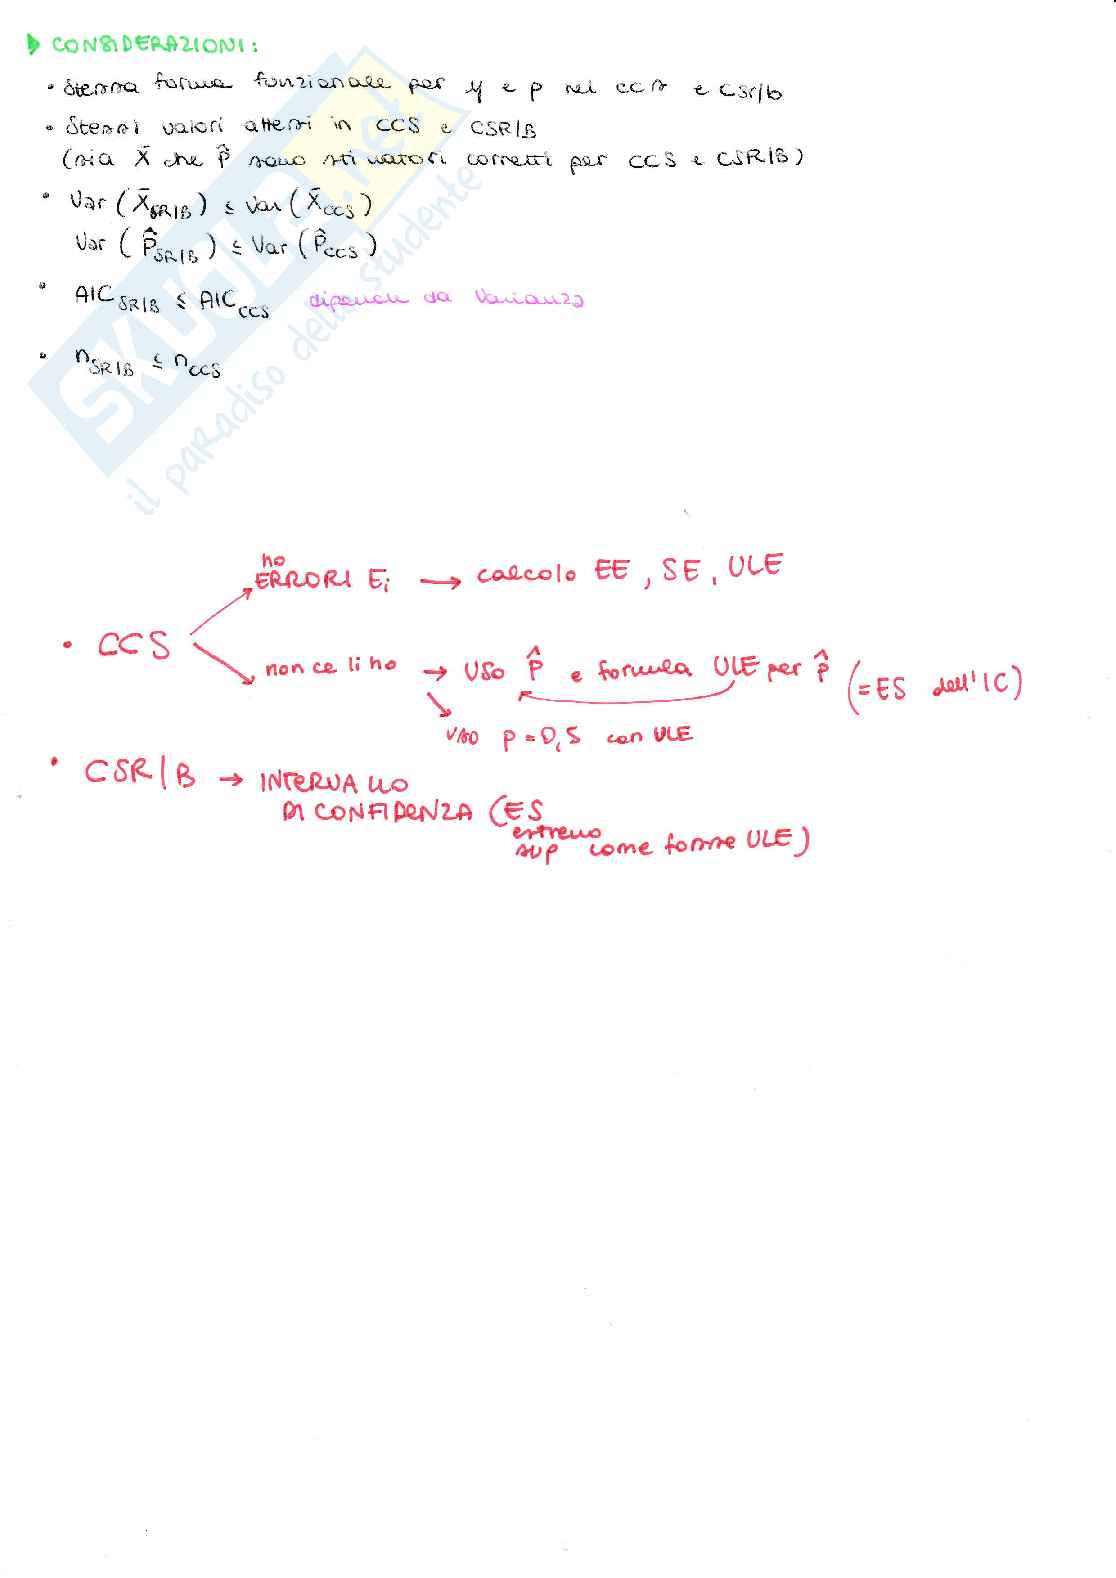 CONSIDERAZIONI:
• Stessa forma funzionale per y e p nei ccs e csr/b
• Stessi valori attesi in CCS e CSR/B
(sia X̄ che P̂ sono stimatori corretti per CCS e CSR/B)
• Var (X̄SR/B) ≤ Var (X̄CCS)
Var (P̂SR/B) ≤ Var (P̂CCS)
• AICSR/B ≤ AICCCS dipende da Varianza
• nSR/B ≤ nCCS
SKUOLA.net
il paradiso dello studente
ho
ERRORI Ei → calcolo EE, SE, ULE
• CCS
non ce li ho → USO P̂ e formula ULE per p̂ (=ES dell'IC)
USO p = 0,5 con ULE
• CSR/B → INTERVALLO
DI CONFIDENZA (ES
estremo
sup come fosse ULE)